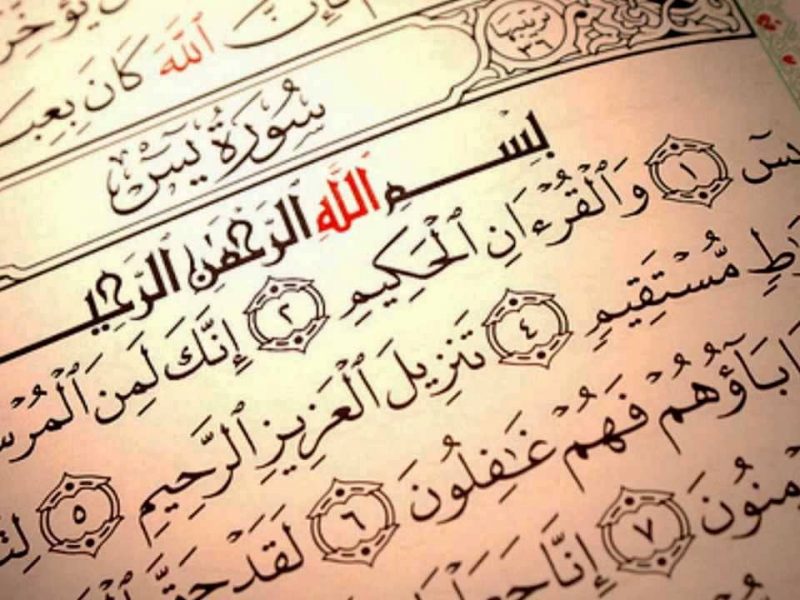 يُؤَخِّر
فَإِنَّ ٱللَّهَ كَانَ بِعِبَ
ترتيبها ٣٦
سُورَةُ يسٓ
بِسْمِ ٱللَّهِ ٱلرَّحْمَٰنِ ٱلرَّحِي
يسٓ ١ وَٱلْقُرْءَانِ ٱلْحَكِيمِ ٢ إِنَّكَ لَمِنَ ٱلْمُرْسَ
رَٰطٍ مُّسْتَقِيمٍ ٤ تَنزِيلَ ٱلْعَزِيزِ ٱلرَّحِيمِ ٥ لِتُ
ءَابَآؤُهُمْ فَهُمْ غَٰفِلُونَ ٦ لَقَدْ حَقَّ
مِنُونَ ٧ إِنَّا جَعَلْنَا